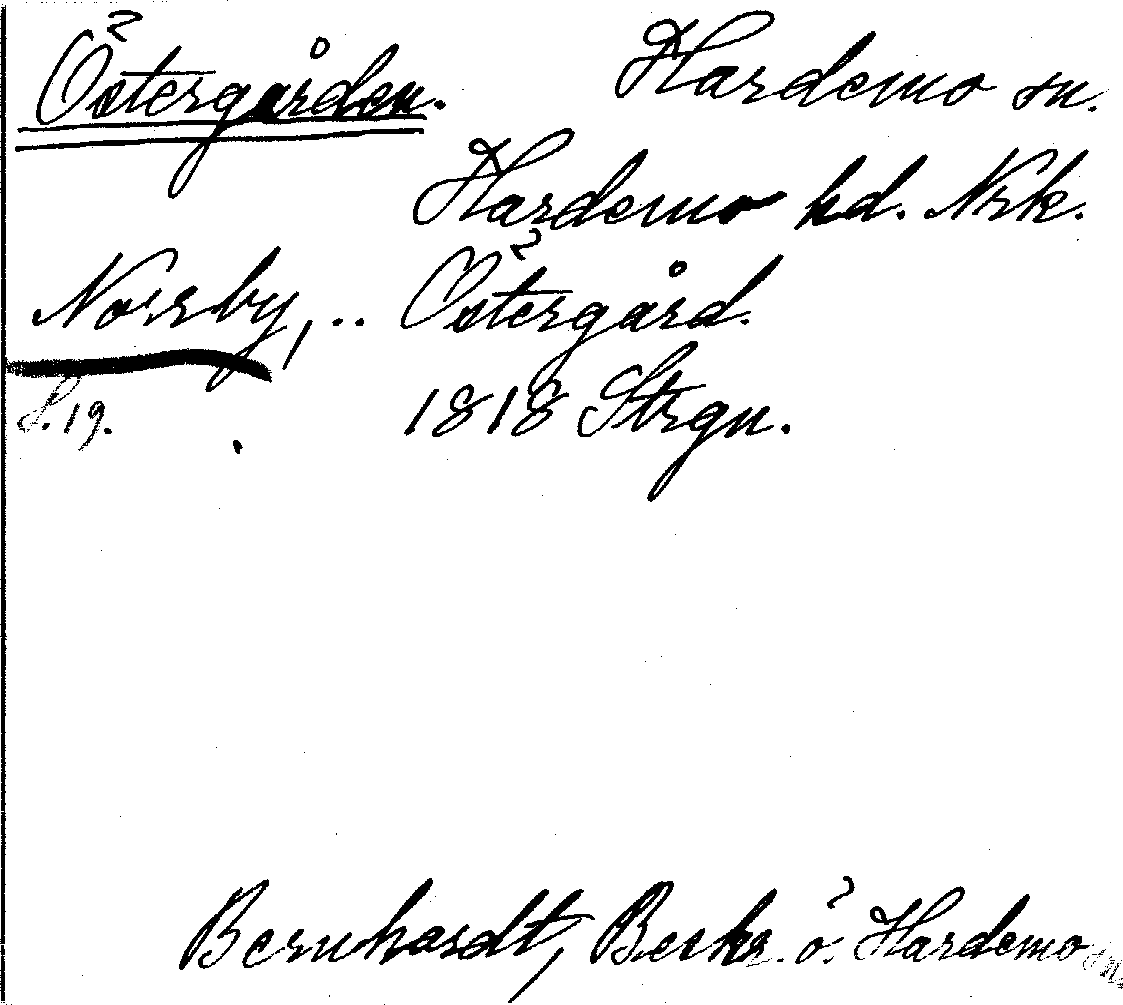 Östergården. Hardemo sn.
Hardemo hd. Nrk.
Norrby, .. Östergård.
S. 19. 1818 Strgn.
Bernhardt, Beskr. ö. Hardemo sn.